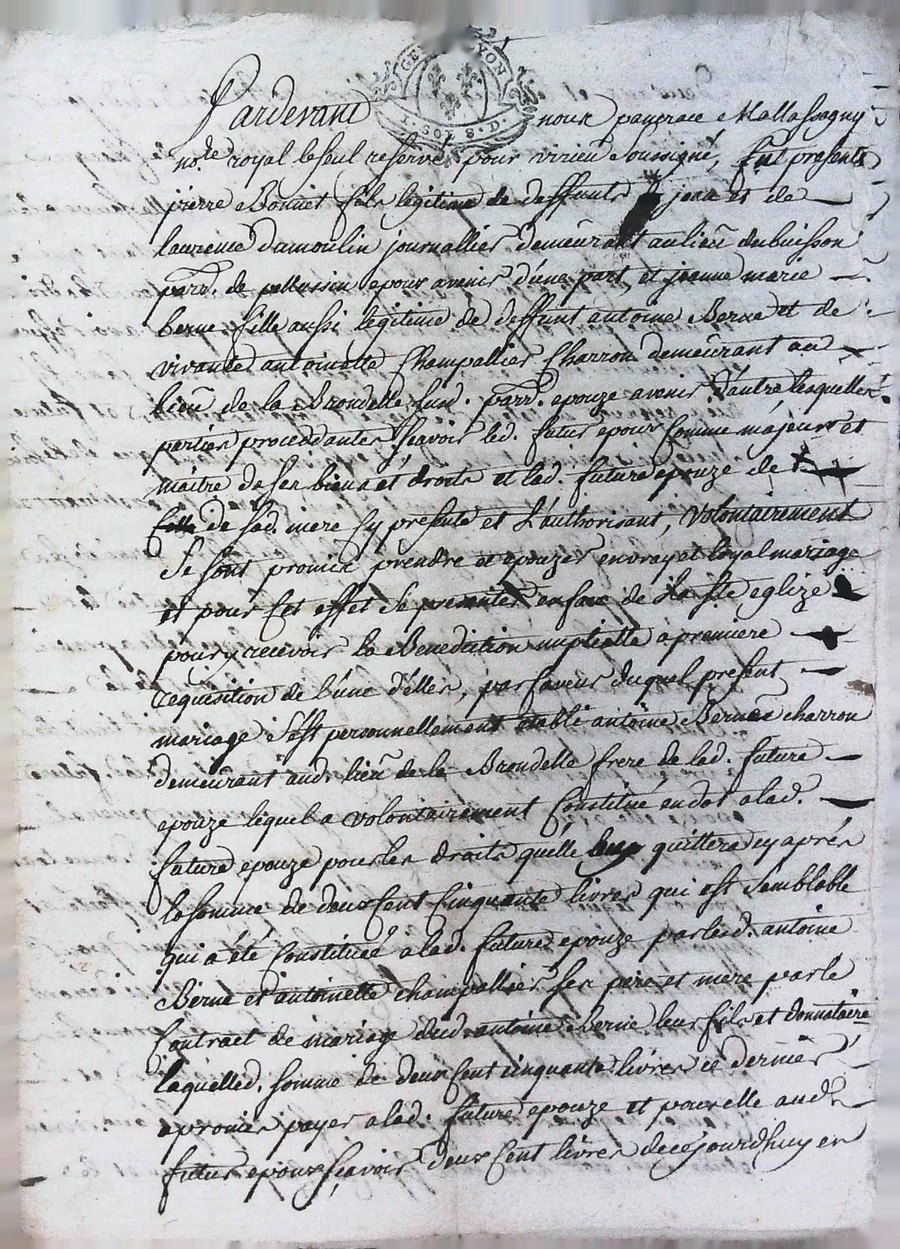 GE LYON
1 · SOL 8 · D ·
Pardevant nous pancrace Mallassagny
no.re royal le seul reservé pour virieu soussigné, fut presents
pierre Bonnet fils legitime de deffunts jean et de
laurence Dumoulin journallier demeurant au lieu du buisson
parr. de pellussin epoux avenir d'une part, et jeanne marie
berne fille aussi legitime de deffunt antoine Berne et de
vivante antoinette Champallier Charron demeurant au
lieu de la Brondelle susd. parr. epouze avenir d'autre lesquelles
parties procedantes scavoir led. futur epoux comme majeur et
maitre de ses biens et droits et lad. future epouze de
de sad. mere cy presente et l'authorisant, volontairement
se sont promis prendre et epouzer en vray et loyal mariage
et pour cet effet se presenter en face de la ste eglize
pour y recevoir la Benediction nuptialle a premiere
requisition de l'une d'elles, par faveur duquel present
mariage s'est personnellement etabli antoine Berne charron
demeurant aud. lieu de la Brondelle frere de lad. future
epouze lequel a volontairement Constitué en dot a lad.
future epouze pour les droits qu'elle luy quittera cy aprés
la somme de deux Cent Cinquante livres qui est semblable
qui a été Constituée a lad. future epouze par lesd. antoine
Berne et antoinette champallier ses pere et mere par le
Contract de mariage dud. antoine Berne leur fils et donnataire
laquelled. somme de deux Cent cinquante livres ce dernier
a promis payer a lad. future epouze et pour elle aud.
futur epoux scavoir deux Cent livres de ce jourd'huy en